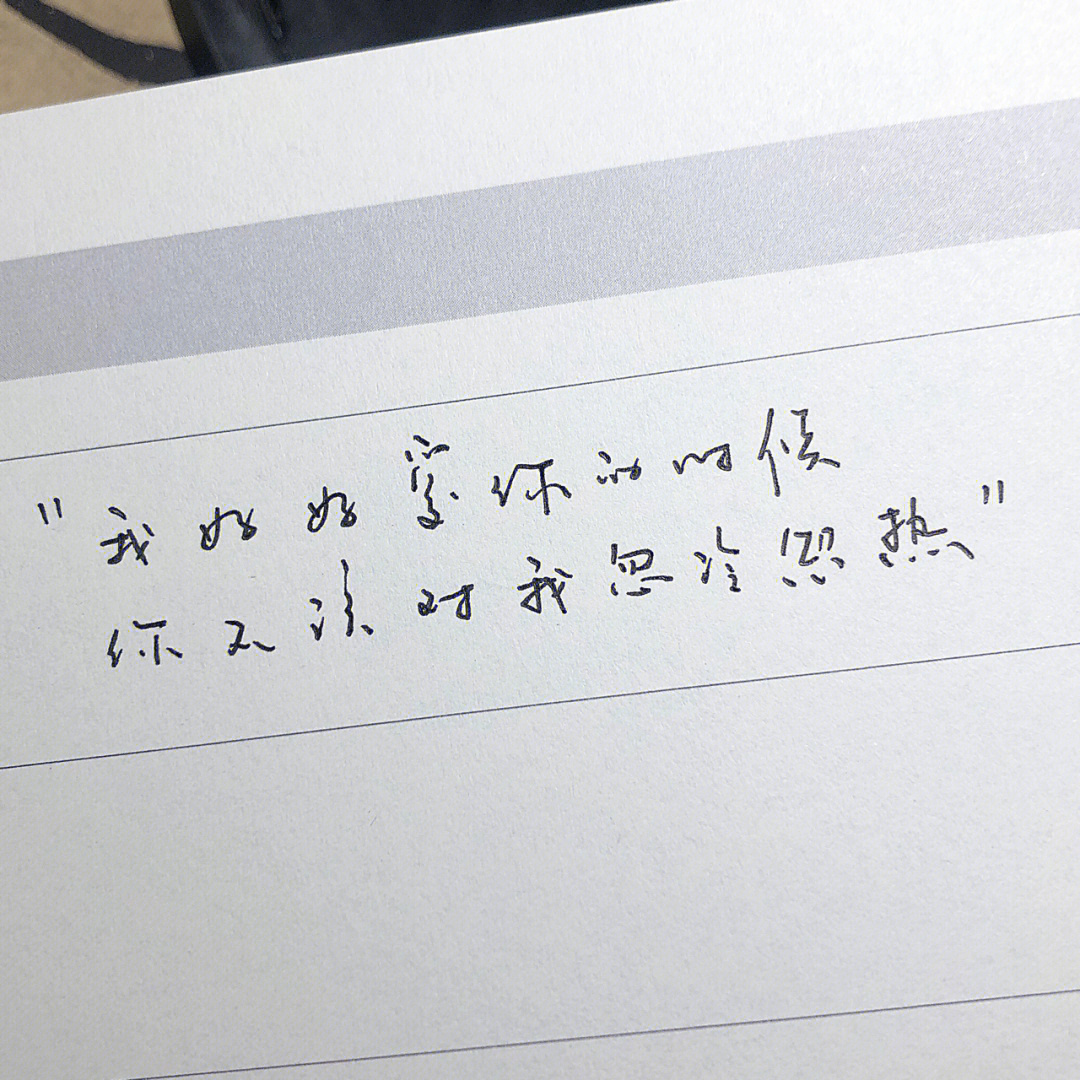 "我好好爱你的时候
你不该对我忽冷忽热"